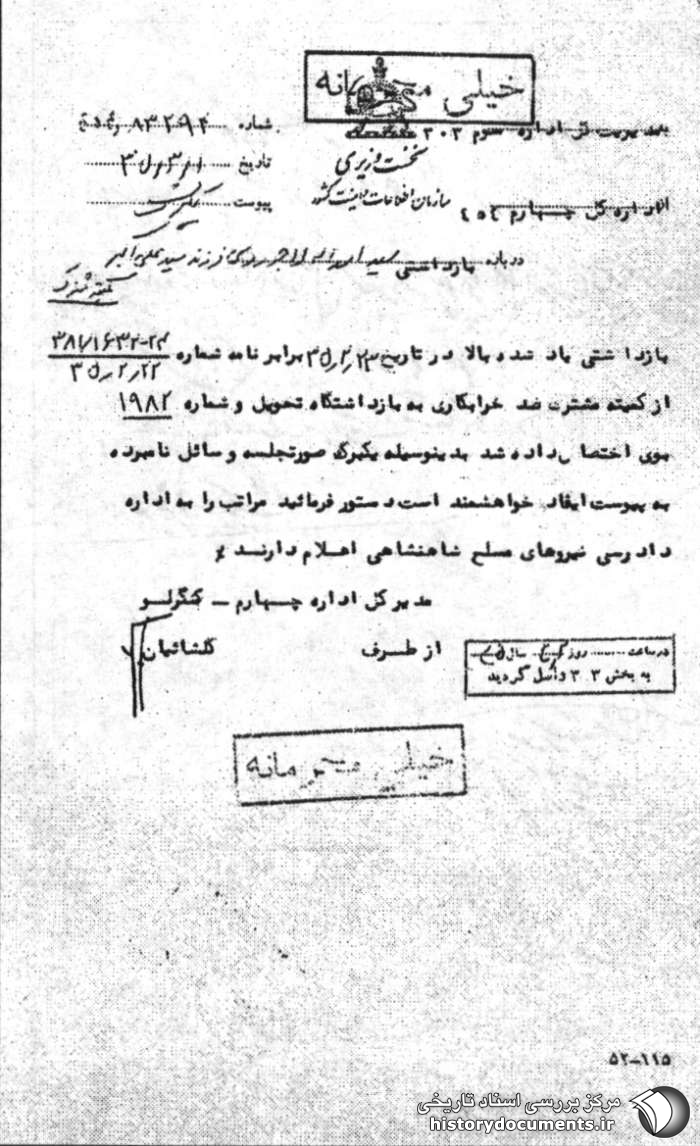 خیلی محرمانه
به مدیریت کل اداره سوم ۳۰۳
شماره ۸۳۲۹۴
نخست وزیری
تاریخ
سازمان اطلاعات و امنیت کشور
پیوست یکبرگ
از اداره کل چهارم ۴۵۴
درباره بازداشتی سید اسداله لاجوردی فرزند سید علی اکبر
کمیته مشترک
بازداشتی یاد شده بالا در تاریخ ۳۵/۲/۲۳ برابر نامه شماره
۳۵/۲/۲۲
از کمیته مشترک ضد خرابکاری به بازداشتگاه تحویل و شماره ۱۹۸۲
بوی اختصاص داده شد بدینوسیله یکبرگ صورتجلسه وسائل نامبرده
به پیوست ایفاد خواهشمند است دستور فرمائید مراتب را به اداره
دادرسی نیروهای مسلح شاهنشاهی اعلام دارند
مدیر کل اداره چهارم – کنگرلو
از طرف گلشائیان
در ساعت ........ روز سال
به بخش ۳۰۳ واصل گردید
خیلی محرمانه
۵۲-۱۱۵
مرکز بررسی اسناد تاریخی
historydocuments.ir